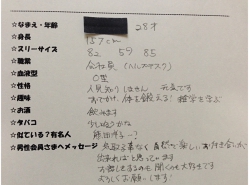 ☆なまえ・年齢 28才
☆身長 157cm
☆スリーサイズ 82 59 85
☆職業 会社員(ヘルプデスク)
☆血液型 O型
☆性格 人見知りしません 元気です
☆趣味 おでかけ、体を鍛える! 雑学を学ぶ
☆お酒 飲めます
☆タバコ 少し吸うかな
☆似ている?有名人
☆男性会員さまへメッセージ 気取る事なく自然で楽しいお付き合いが
出来ればと思ってます
お話しするのも聞くのも大好きです
よろしくお願いします!